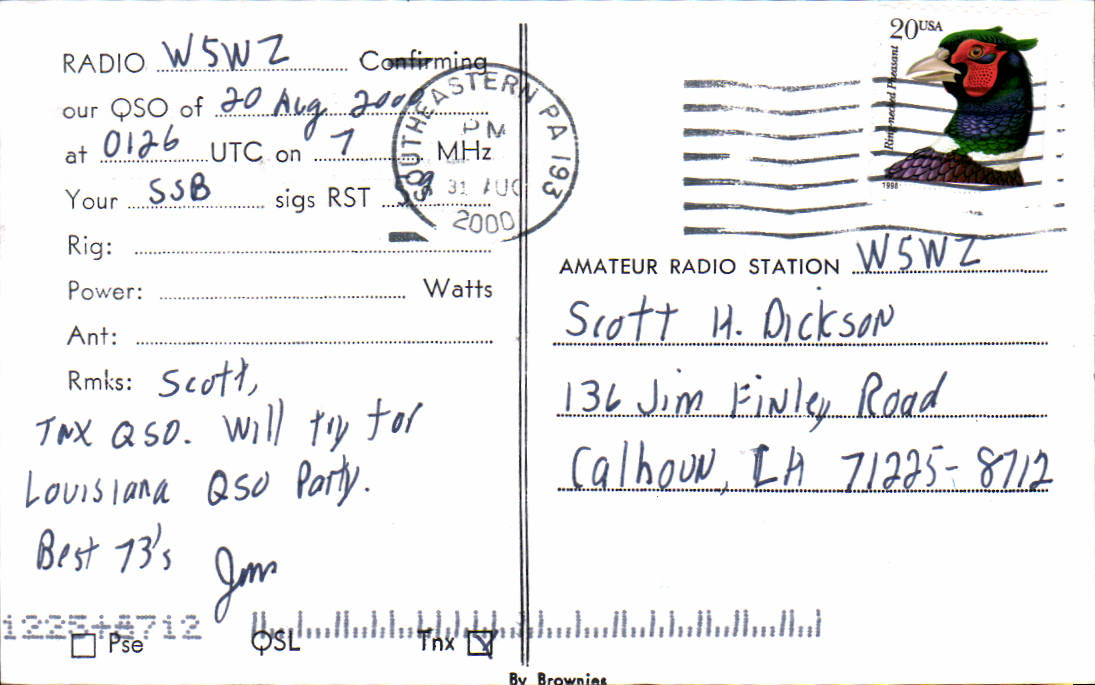 RADIO W5WZ Confirming
our QSO of 20 Aug 2000
at 0126 UTC on 7 MHz
Your SSB sigs RST 59
Rig:
Power: Watts
Ant:
Rmks: Scott,
TNX QSO. Will try for
Louisiana QSO Party.
Best 73's Jim
1225+8712
Pse QSL Tnx
SOUTHEASTERN PA 193
PM
31 AUG
2000
20 USA
Ring-necked Pheasant
1998
AMATEUR RADIO STATION W5WZ
Scott H. Dickson
136 Jim Finley Road
Calhoun, LA 71225-8712
By Brownies